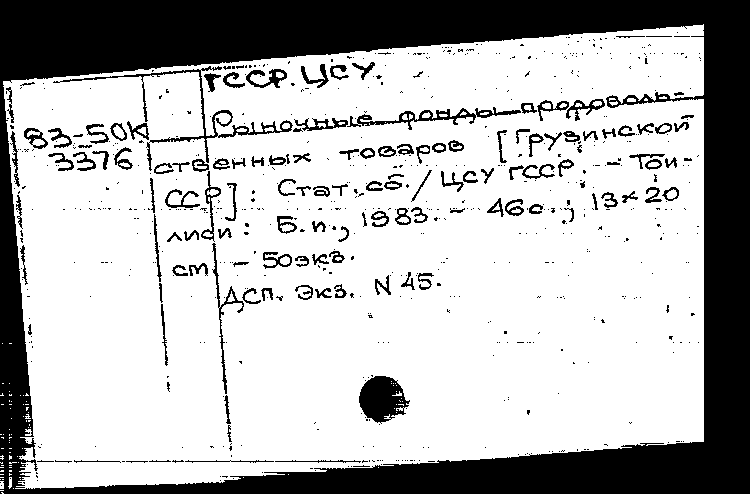 ГССР. ЦСУ.
83-50К
3376
Рыночные фонды продоволь-
ственных товаров [Грузинской
ССР]: Стат. сб. / ЦСУ ГССР. - Тби-
лиси: Б.и., 1983. - 46с.; 13×20
см. - 50экз.
ДСП. Экз. N 45.